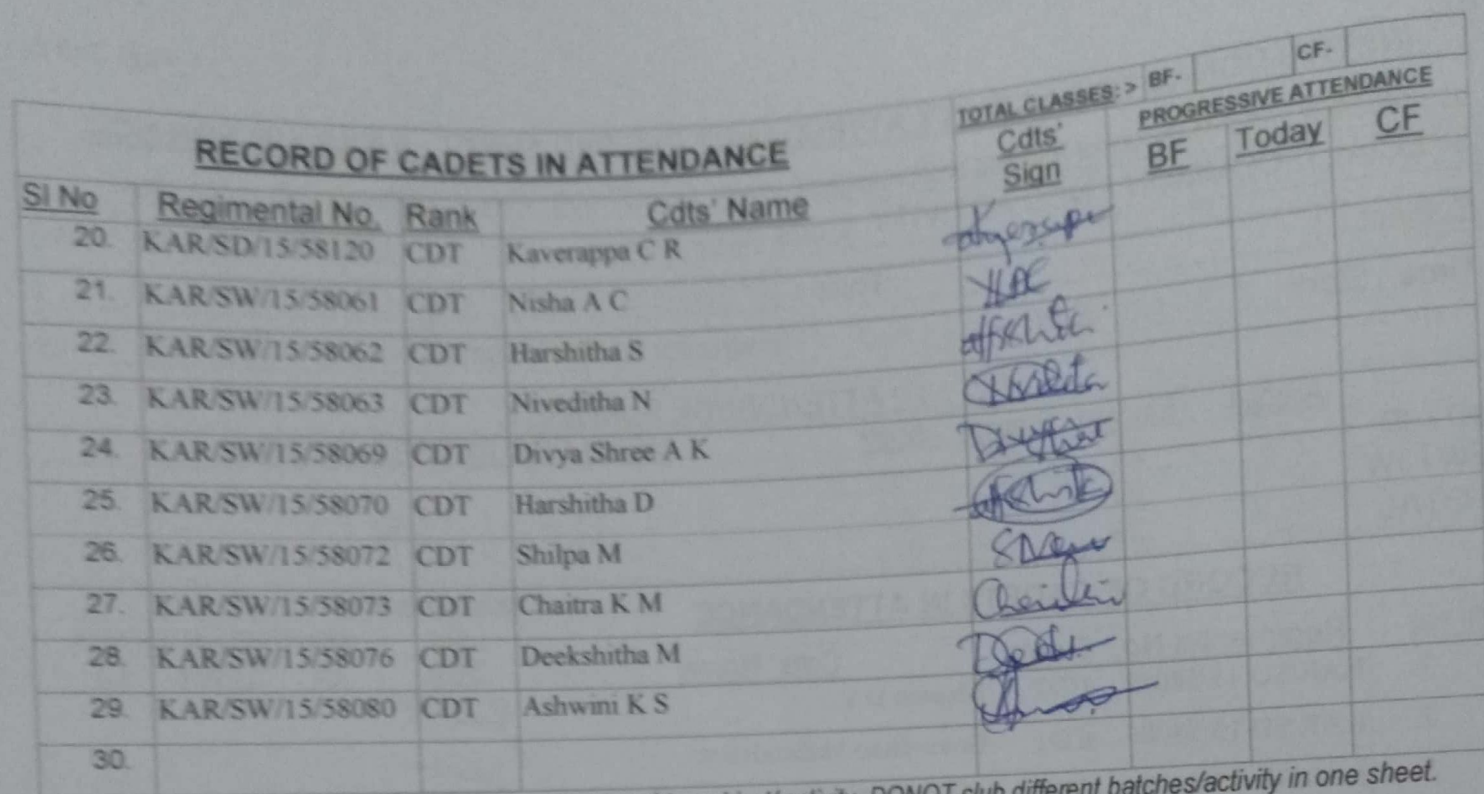 TOTAL CLASSES: > BF- CF-
RECORD OF CADETS IN ATTENDANCE Cdts' Sign PROGRESSIVE ATTENDANCE
Sl No Regimental No. Rank Cdts' Name BF Today CF
20. KAR/SD/15/58120 CDT Kaverappa C R
21. KAR/SW/15/58061 CDT Nisha A C
22. KAR/SW/15/58062 CDT Harshitha S
23. KAR/SW/15/58063 CDT Niveditha N
24. KAR/SW/15/58069 CDT Divya Shree A K
25. KAR/SW/15/58070 CDT Harshitha D
26. KAR/SW/15/58072 CDT Shilpa M
27. KAR/SW/15/58073 CDT Chaitra K M
28. KAR/SW/15/58076 CDT Deekshitha M
29. KAR/SW/15/58080 CDT Ashwini K S
30.
DONOT club different batches/activity in one sheet.